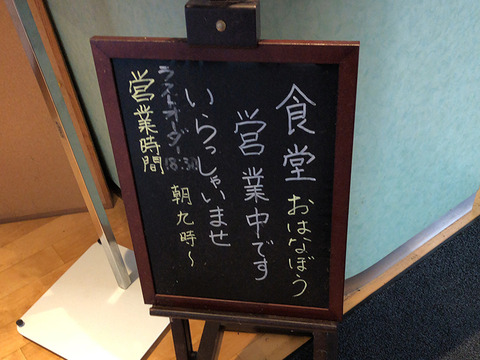 食堂 おはなぼう
営業中です
いらっしゃいませ
営業時間 朝九時~
ラストオーダー 18:30